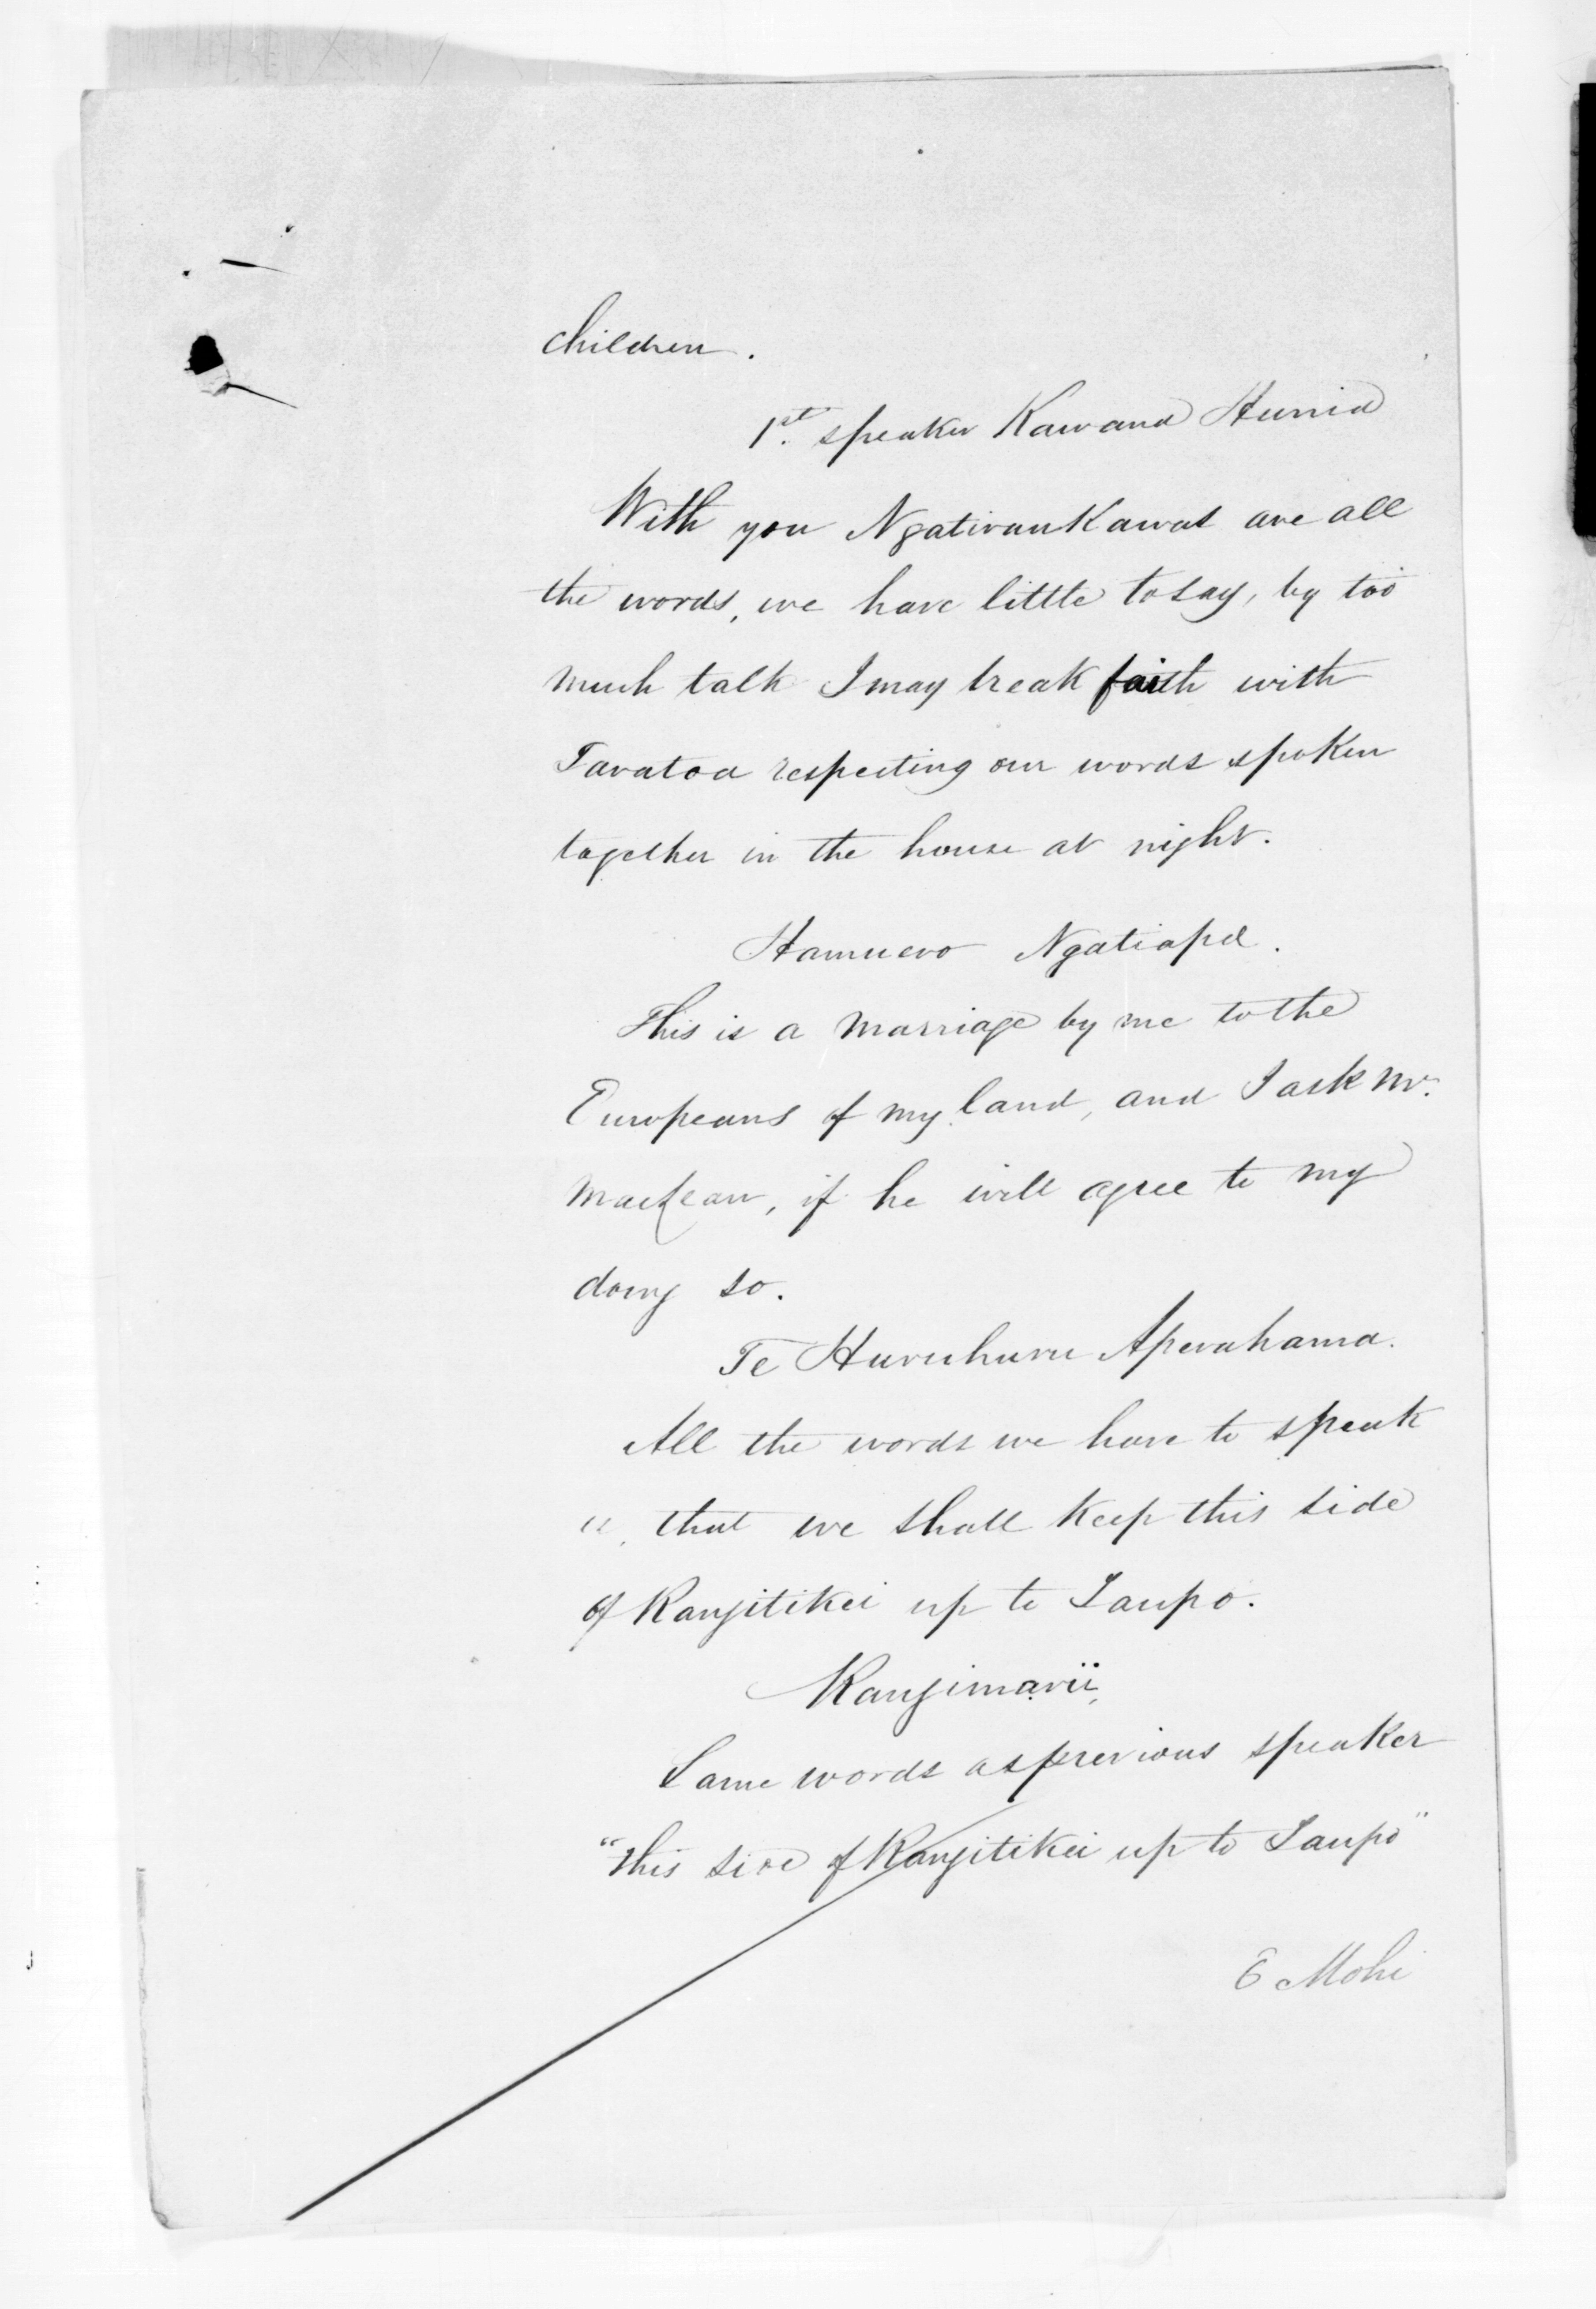 children.
1st. speaker Kawana Hunia
With you Ngatiraukawa are all
the words, we have little to say, by too
much talk I may break faith with
Taratoa respecting our words spoken
together in the house at night.
Hamuera Ngatiapa.
This is a marriage by me to the
Europeans of my land, and I ask Mr.
MacLean, if he will agree to my
doing so.
Te Huruhuru Aperahama.
All the words we have to speak
is, that we shall keep this side
of Rangitikei up to Taupo.
Rangimarii,
Same words as previous speaker
"this side of Rangitikei up to Taupo"
E Mohi